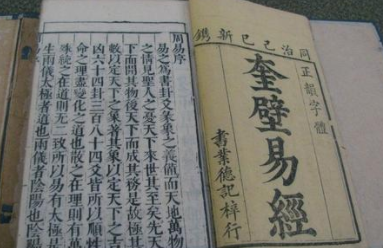 同治己巳新鐫
正韻字體
奎壁易經
書業德記梓行
周易序
易之為書卦爻彖象之義備而天地萬物
之情見聖人之憂天下來世其至矣先天
下而開其物後天下而成其務是故極其
數以定天下之象著其象以定天下之吉
凶六十四卦三百八十四爻皆所以順性
命之理盡變化之道也散之在理則有萬
殊統之在道則无二致所以易有太極是
生兩儀太極者道也兩儀者陰陽也陰陽